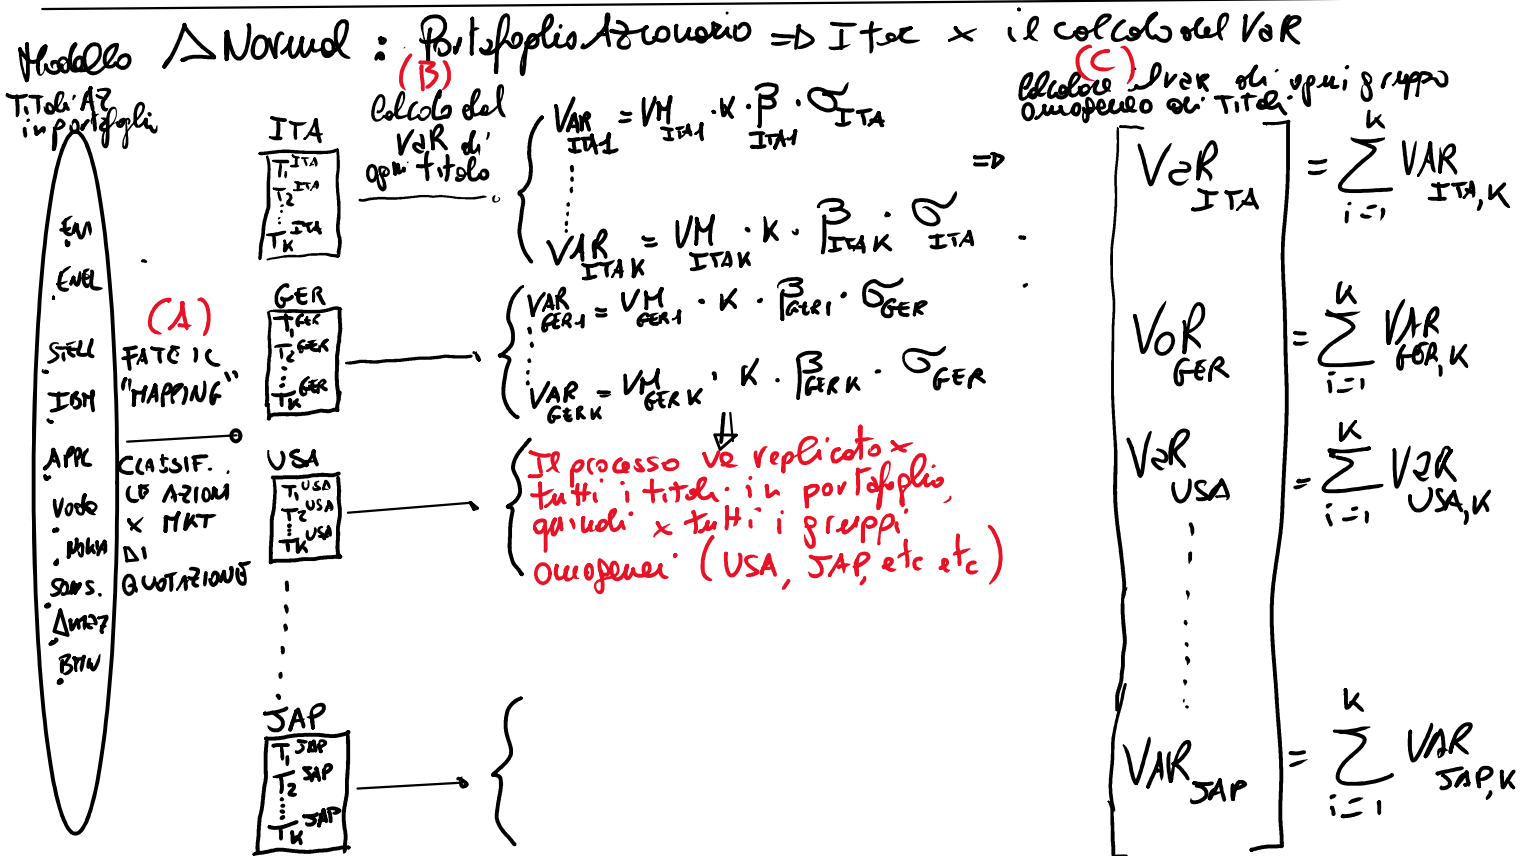 Modello Δ Normal : Portafoglio Azionario ⇒ Iter × il calcolo del VaR
Titoli AZ
in portafoglio
ENI
ENEL
STELL
IBM
APPL
Voda
Nokia
Sams.
Amaz
BMW
(A)
FATE IL
"MAPPING"
CLASSIF.
LE AZIONI
× MKT
DI
QUOTAZIONE
ITA
T1 ITA
T2 ITA
TK ITA
GER
T1 GER
T2 GER
TK GER
USA
T1 USA
T2 USA
TK USA
JAP
T1 JAP
T2 JAP
TK JAP
(B)
Calcolo del
VaR di
ogni titolo
VAR ITA1 = VM ITA1 · K · β ITA1 · σ ITA
VAR ITA K = VM ITA K · K · β ITA K · σ ITA
VAR GER1 = VM GER1 · K · β GER1 · σ GER
VAR GER K = VM GER K · K · β GER K · σ GER
Il processo va replicato ×
tutti i titoli in portafoglio,
quindi × tutti i gruppi
omogenei (USA, JAP, etc etc)
(C)
Calcolare il VaR di ogni gruppo
omogeneo di Titoli
VaR ITA = K ∑ i=1 VAR ITA,K
VaR GER = K ∑ i=1 VAR GER,K
VaR USA = K ∑ i=1 VaR USA,K
VAR JAP = K ∑ i=1 VAR JAP,K